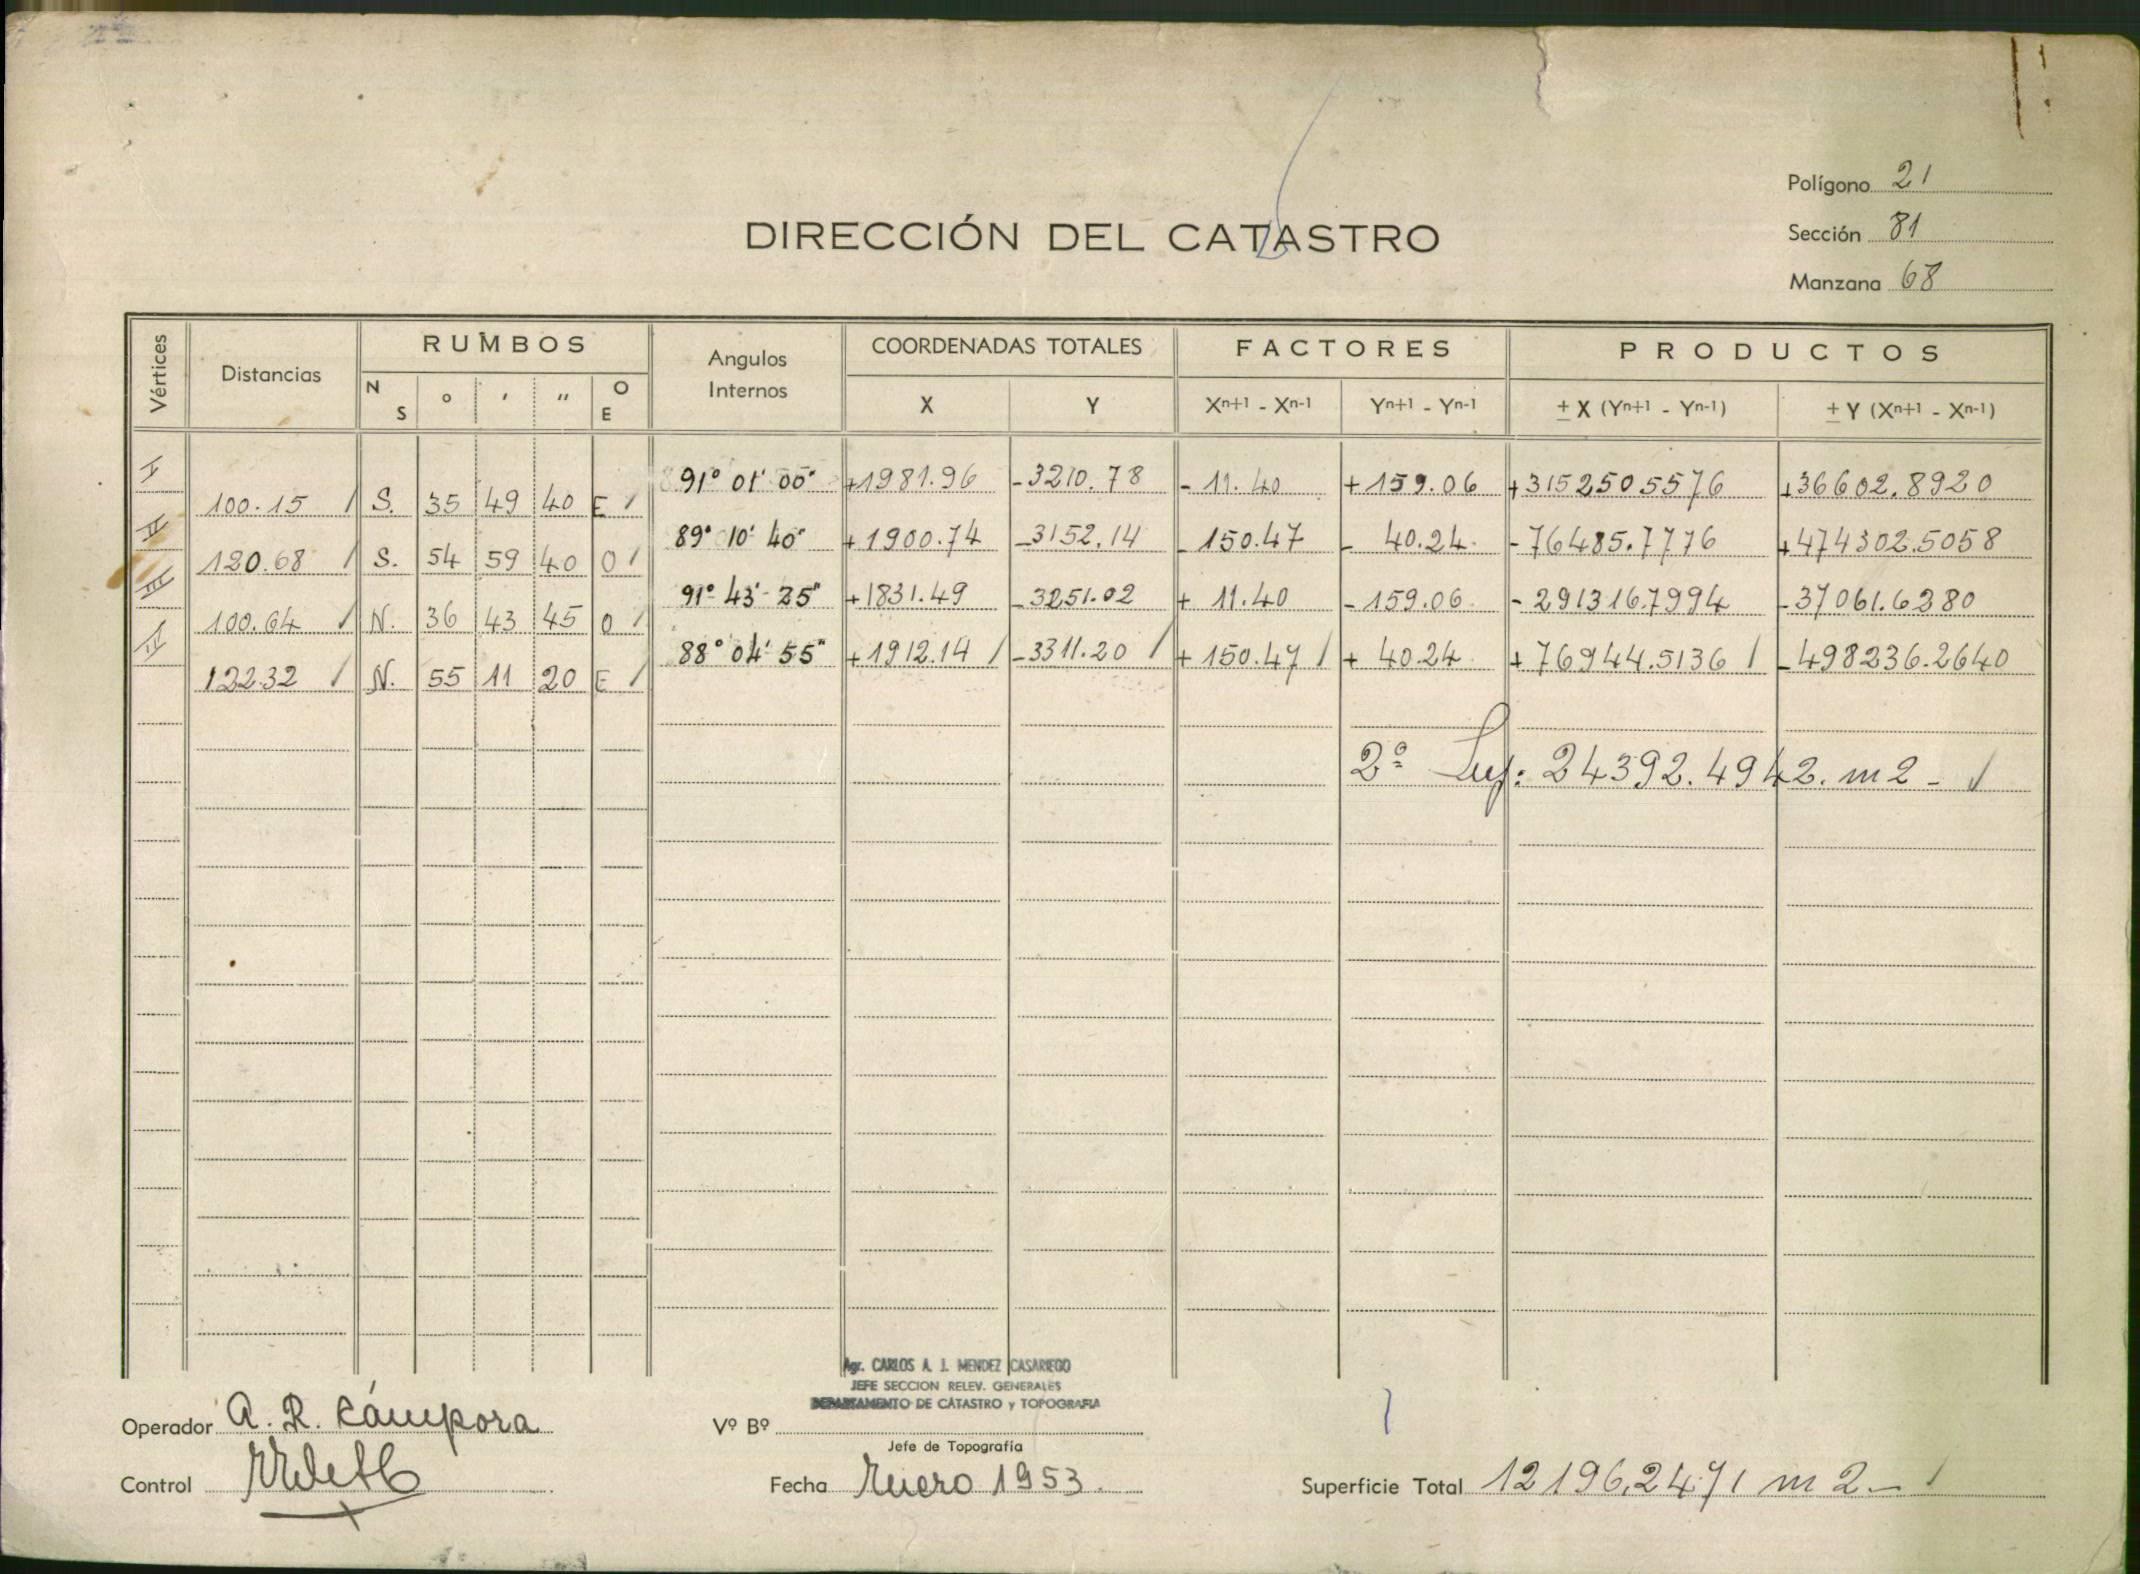 Polígono 21
DIRECCIÓN DEL CATASTRO
Sección 81
Manzana 68
Vértices Distancias RUMBOS Angulos Internos COORDENADAS TOTALES FACTORES PRODUCTOS
N S ° ' " O E X Y Xn+1 - Xn-1 Yn+1 - Yn-1 ± X (Yn+1 - Yn-1) ± Y (Xn+1 - Xn-1)
I 91° 01' 00" +1981.96 -3210.78 - 11.40 +159.06 +3152505576 +36602.8920
100.15 S. 35 49 40 E
II 89° 10' 40" +1900.74 -3152.14 - 150.47 - 40.24 -76485.7776 +474302.5058
120.68 S. 54 59 40 O
III 91° 43' 25" +1831.49 -3251.02 + 11.40 -159.06 -291316.7994 -37061.6280
100.64 N. 36 43 45 O
IV 88° 04' 55" +1912.14 -3311.20 + 150.47 + 40.24 +76944.5136 -498236.2640
122.32 N. 55 11 20 E
2ª Sup: 24392.4942. m2 -
Agr. CARLOS A. J. MENDEZ CASARIEGO
JEFE SECCION RELEV. GENERALES
DEPARTAMENTO DE CATASTRO y TOPOGRAFIA
Operador A. R. Cámpora
Vº Bº
Jefe de Topografía
Control
Fecha Enero 1953.
Superficie Total 12196.2471 m2.-